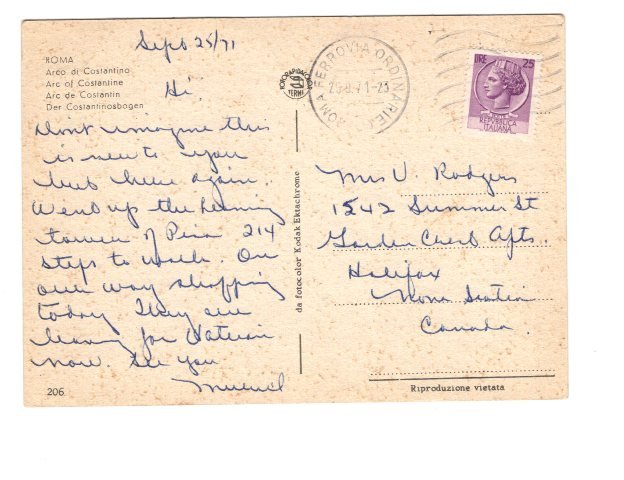 Sept 25/71
ROMA
Arco di Costantino
Arc of Costantine
Arc de Costantin
Der Costantinosbogen
Hi
Dont imagine this
is new to you
but here again.
Went up the leaning
tower of Pisa 214
steps to walk. On
our way shopping
today They are
leaving for Vatican
now. See you
Muriel
206
da fotocolor Kodak Ektachrome
TERNI
ROMA FERROVIA ORDINARIE
71-23
LIRE 25
REPUBBLICA
ITALIANA
Mrs V. Rodgers
1542 Summer St
Garden Crest Apts.
Halifax
Nova Scotia
Canada.
Riproduzione vietata